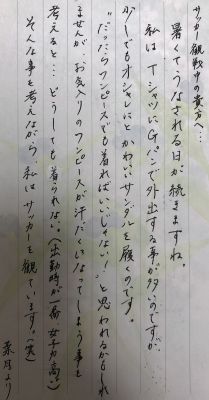 サッカー観戦中の貴方へ…
暑くてうなされる日が続きますね。
私はTシャツにGパンで外出する事が多いのですが、
少しでもオシャレにとかわいいサンダルを履くのです。
"だったらワンピースでも着ればいいじゃない！"と思われるかもしれ
ませんが、お気入りのワンピースが汗だくになってしまう事を
考えると…どうしても着られない。(出勤時が一番女子力高い)
そんな事を考えながら、私はサッカーを観ています。(笑)
菜月より